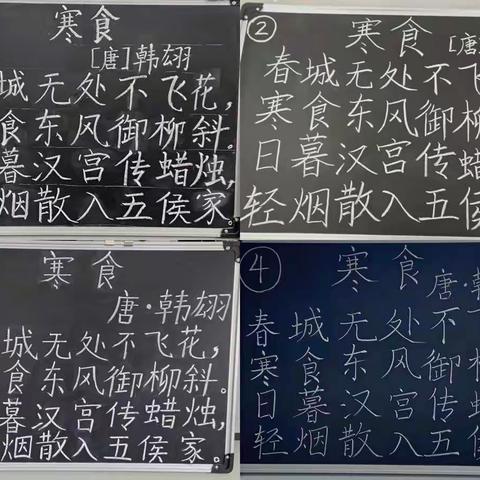 寒食
[唐]韩翃
城无处不飞花，
食东风御柳斜。
暮汉宫传蜡烛，
烟散入五侯家
②
寒食
[唐
春城无处不飞
寒食东风御柳
日暮汉宫传蜡
轻烟散入五侯
寒食
唐·韩翃
城无处不飞花，
食东风御柳斜。
暮汉宫传蜡烛，
烟散入五侯家。
④
寒食
唐·韩
春城无处不
寒食东风御
日暮汉宫传
轻烟散入五